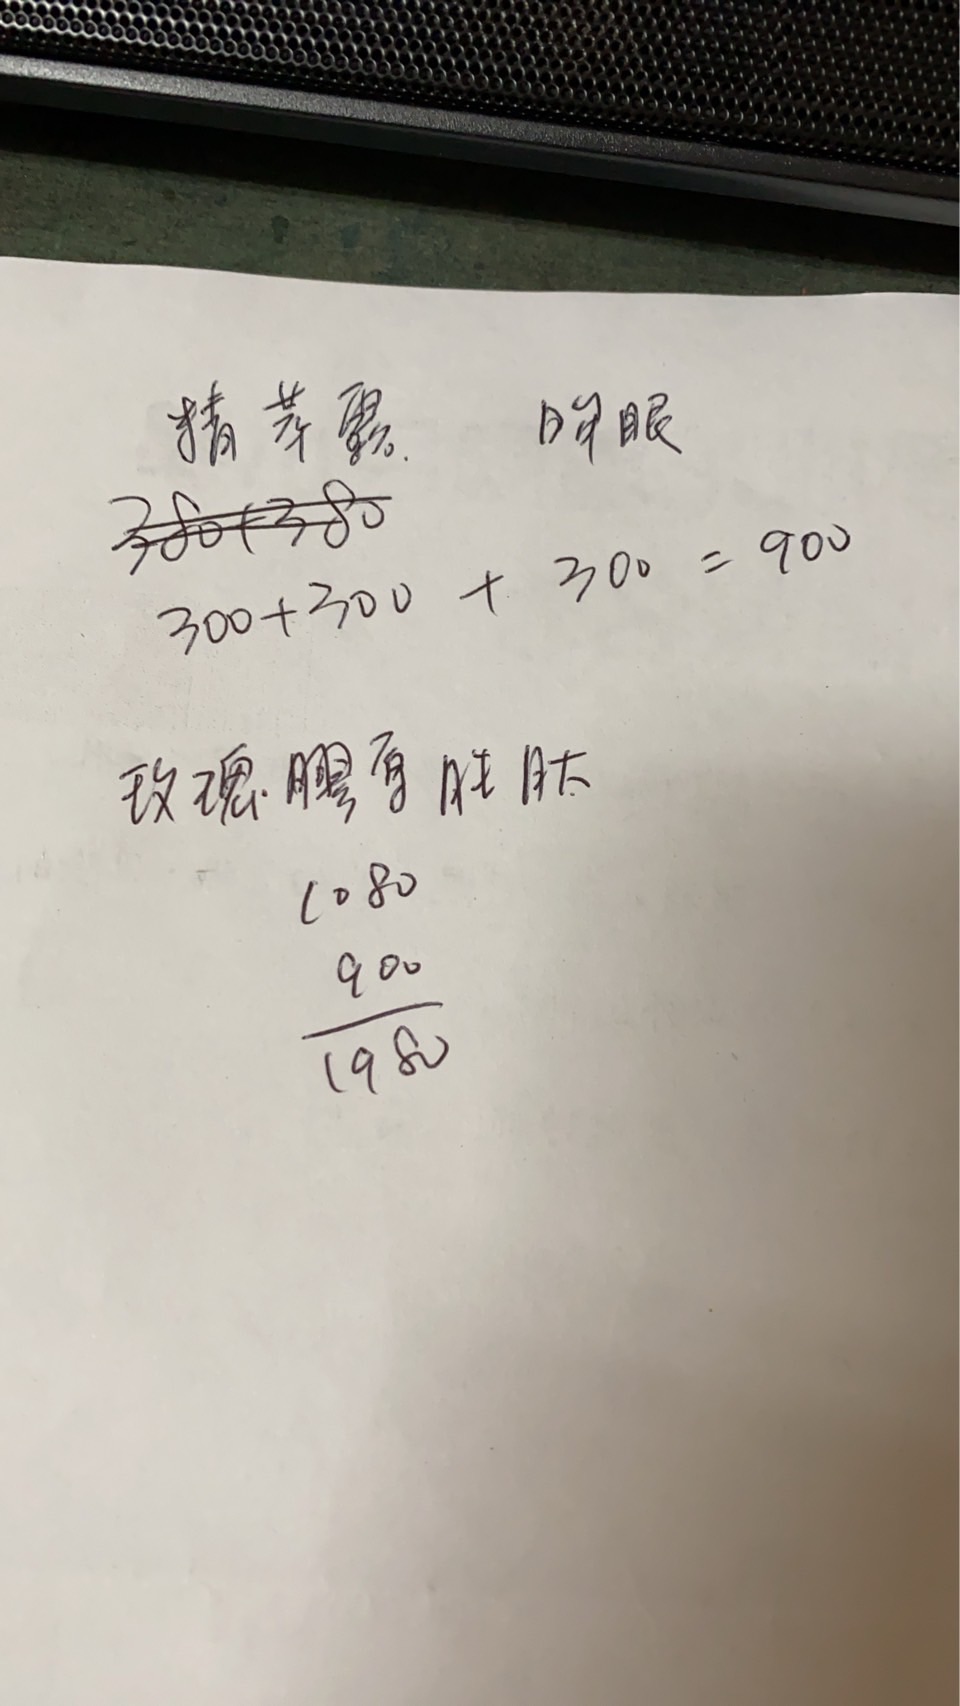 精萃露 眸眼
380+380
300+300 + 300 = 900
玫瑰膠原胜肽
1080
900
1980